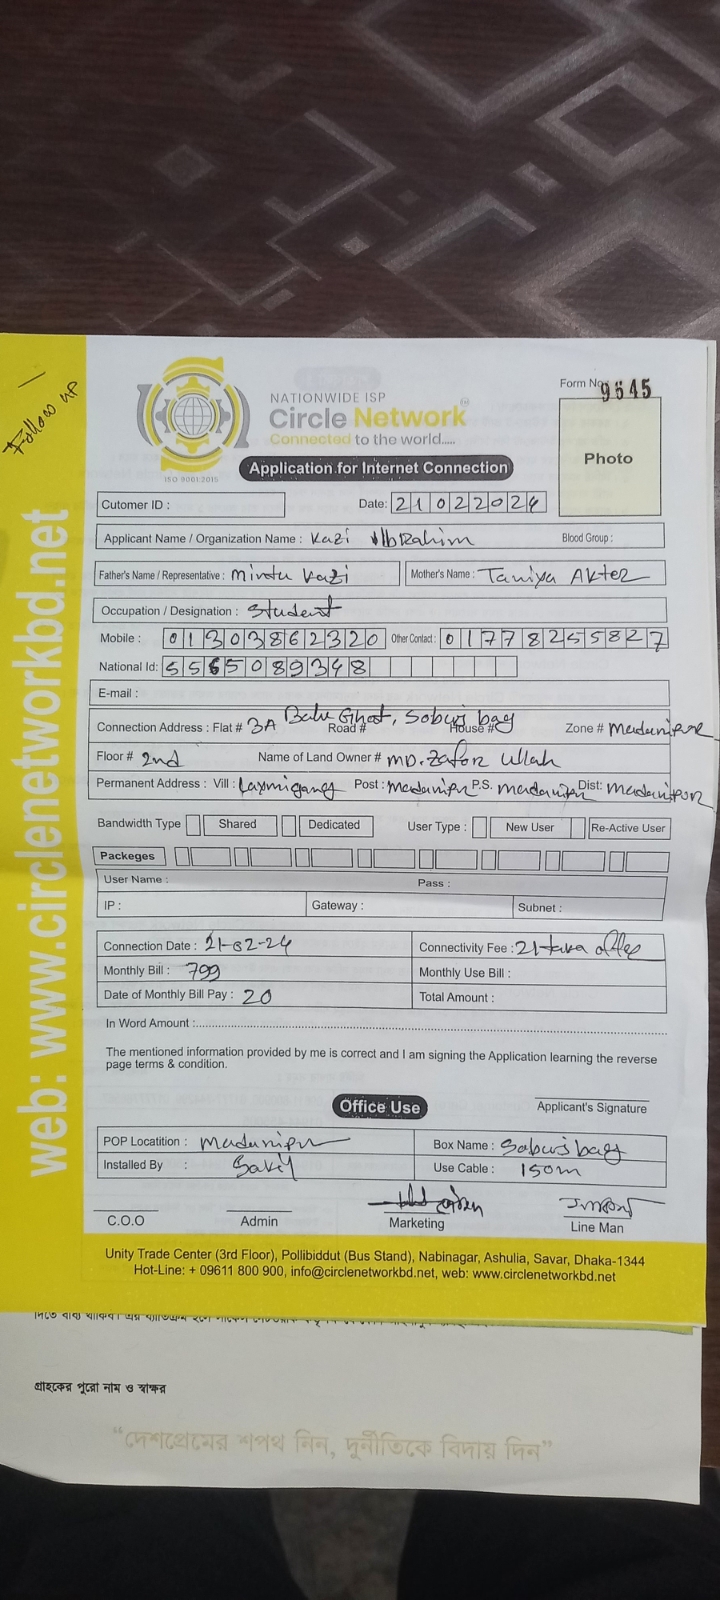 Follow up
web: www.circlenetworkbd.net
NATIONWIDE ISP
Circle Network
Connected to the world.....
ISO 9001:2015
Application for Internet Connection
Form No 9645
Photo
Cutomer ID :
Date: 21022024
Applicant Name / Organization Name : Kazi Ibrahim
Blood Group :
Father's Name / Representative : Mintu Kazi
Mother's Name : Taniya Akter
Occupation / Designation : Student
Mobile : 01303862320 Other Contact : 01778255827
National Id: 5565089348
E-mail :
Connection Address : Flat # 3A Road # House # Balu Ghat, Sobuj bag Zone # Madanipur
Floor # 2nd Name of Land Owner # MD. Zafor Ullah
Permanent Address : Vill : Laxmigang Post : Madanipur P.S. Madanipur Dist: Madanipur
Bandwidth Type Shared Dedicated User Type : New User Re-Active User
Packeges
User Name : Pass :
IP : Gateway : Subnet :
Connection Date : 21-02-24 Connectivity Fee : 21 taka offer
Monthly Bill : 799 Monthly Use Bill :
Date of Monthly Bill Pay : 20 Total Amount :
In Word Amount :
The mentioned information provided by me is correct and I am signing the Application learning the reverse
page terms & condition.
Office Use
Applicant's Signature
POP Locatition : Madanipur Box Name : Sobuj bag
Installed By : Sakil Use Cable : 150m
C.O.O Admin Marketing Line Man
Unity Trade Center (3rd Floor), Pollibiddut (Bus Stand), Nabinagar, Ashulia, Savar, Dhaka-1344
Hot-Line: + 09611 800 900, info@circlenetworkbd.net, web: www.circlenetworkbd.net
গ্রাহকের পুরো নাম ও স্বাক্ষর
“দেশপ্রেমের শপথ নিন, দুর্নীতিকে বিদায় দিন”